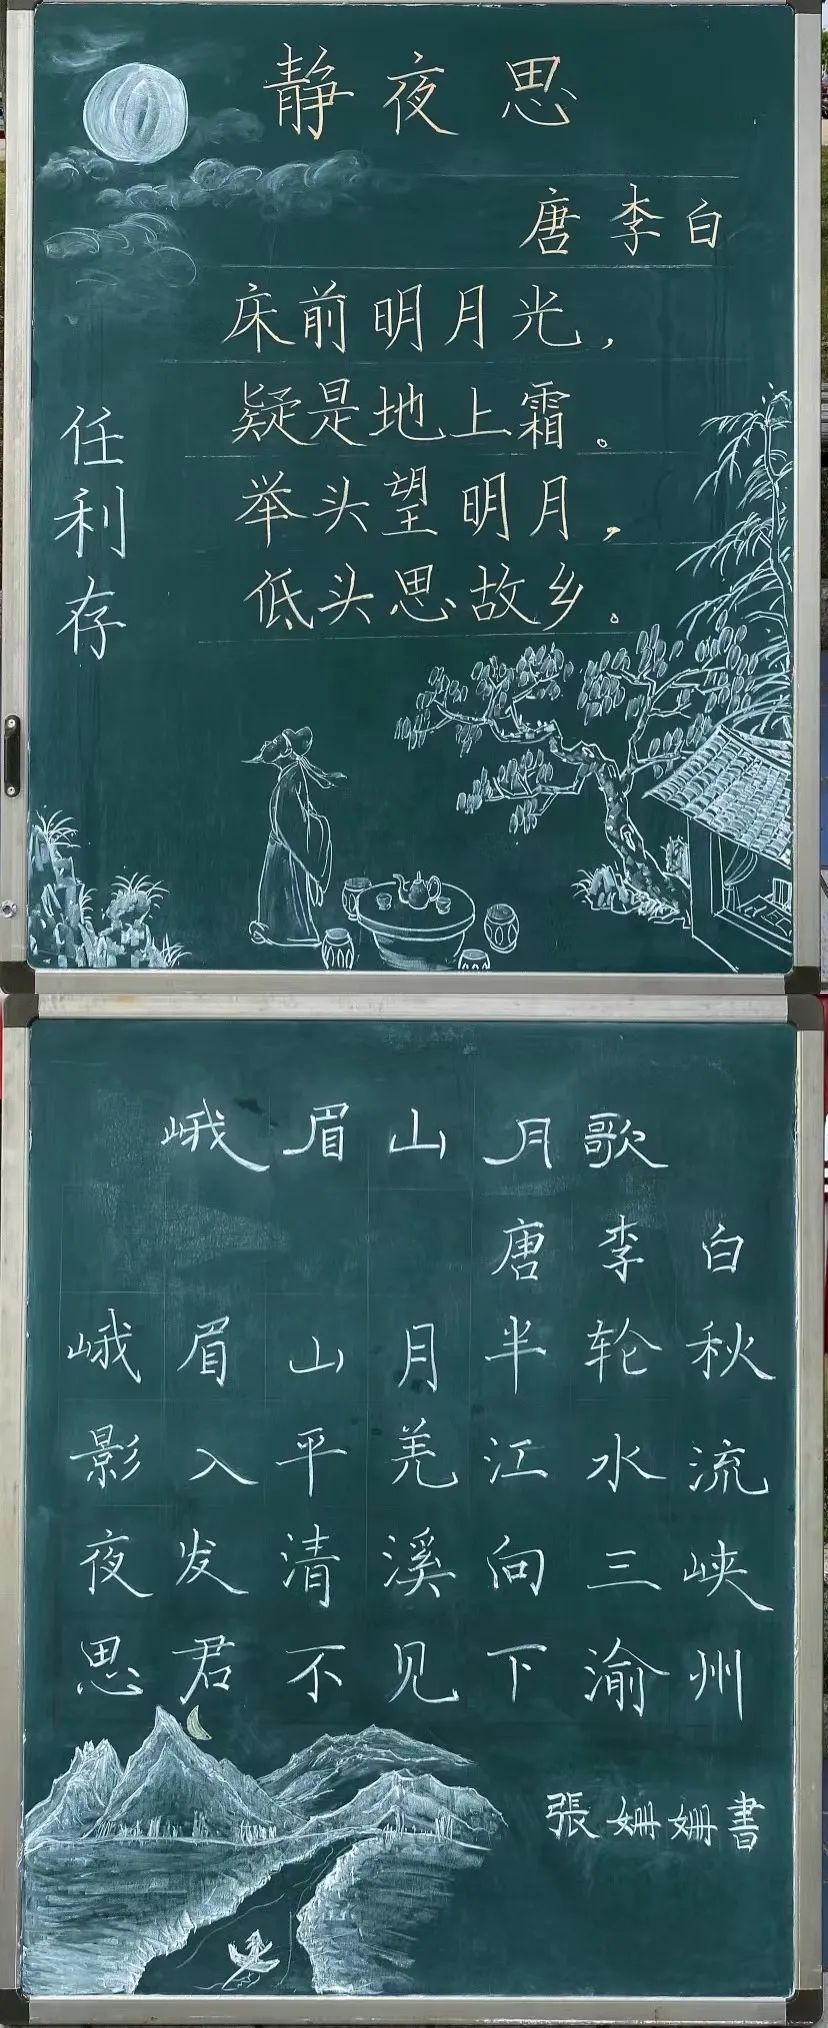 静夜思
唐 李白
床前明月光，
疑是地上霜。
举头望明月，
低头思故乡。
任利存
峨眉山月歌
唐李白
峨眉山月半轮秋
影入平羌江水流
夜发清溪向三峡
思君不见下渝州
張姗姗書